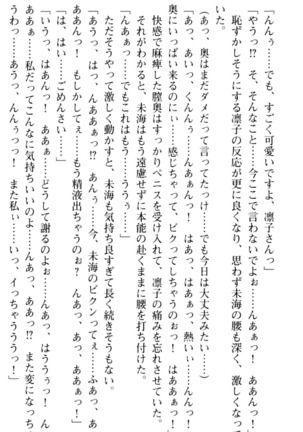 「んんぅ……でも、すごく可愛いですよ、凛子さんっ」
「やうっ!? そ、そんなこと……今ここで言わないでよぉ……んあぁっ! ああんっ!」
恥ずかしそうにする凛子の反応が更に良くなり、思わず未海の腰も深く、激しくなって
いく。
(あっ、奥はまだダメだって言ってたっけ……でも今日は大丈夫みたい……)
「はあっ、あいっ、くんんぅ……んあぁんっ! はあっ、はあぁっ、熱いぃ……んんっ!
奥にいっぱい来るのにぃ……感じちゃって、ビクってしちゃうのぉっ! はああぁっ!」
快感で麻痺した膣奥はすっかりペニスを受け入れて、凛子の痛みを忘れさせていた。
それがわかると、未海はもう遠慮せずに本能の赴くままに腰を打ち付けた。
「んあぁっ……でもこれはもう……ううぅ……」
ただそうやって激しく動かすと、未海も気持ち良すぎて長く続きそうもない。
「あうっ、はっ、んああぁっ!? あんぅ……今、未海のビクンってぇ……ふあっ、あ
あんっ! もしかしてぇ……もう精液出ちゃうのぉ? んあっ、あっ、ああぁっ!」
「は、はい……ごめんさい……」
「いうっ、はあんっ! ああぁっ……どうして謝るのよぉっ……んあっ、はううぅっ! ん
ああぁっ……私だってこんなに気持ちいいのよ……んあっ、ああっ!? また変になっち
うわっ…あうっ、んんぅっっ! また私ぃ……いっ、イっちゃううぅっ!」